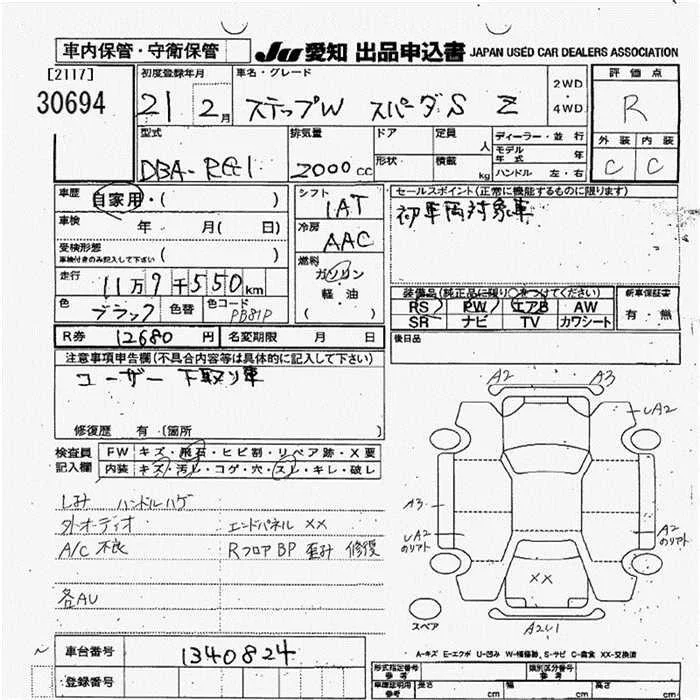 車内保管・守衛保管
JU 愛知 出品申込書 JAPAN USED CAR DEALERS ASSOCIATION
[2117]
30694
初度登録年月 車名・グレード 評価点
21 2月 ステップW スパーダS Z 2WD・4WD R
型式 排気量 ドア 定員 人 ディーラー・並行 外装 内装
DBA- 2000cc 形状 積載 kg モデル年式 年 C C
ハンドル 左・右
車歴 自家用・( ) シフト 1AT セールスポイント(正常に機能するものに限ります)
車検 年 月( 日) 冷房 AAC 初車両対象車
受検形態 車検付きのみ記入して下さい ( ) 燃料 ガソリン
走行 11万9千550km 軽油
色 ブラック 色替 色コード PB81P ( )
装備品(純正品に限り○をつけてください) 新車保証書
RS PW エアB AW 有・無
SR ナビ TV カワシート
R券 12680円 名変期限 月 日 後日品
注意事項申告欄(不具合内容等は具体的に記入して下さい)
ユーザー下取り車
修復歴 有(箇所 )
検査員記入欄 FW キズ・飛石・ヒビ割・リペア跡・X要
内装 キズ・汚レ・コゲ・穴・スレ・キレ・破レ
しみ ハンドルハゲ
外オーディオ エンドパネル XX
A/C 不良 RフロアBP 歪み 修復
各AU
A2 A3
UA2
A3
UA2のリアト
A2のリアト
XX
スペア
A2U1
A-キズ E-エクボ U-凹み W-補修跡 S-サビ C-腐食 XX-交換済
車台番号 1340824
登録番号
形式指定番号 参考 類別区分番号 参考
車庫証明用 参考 長さ cm 幅 cm 高さ cm